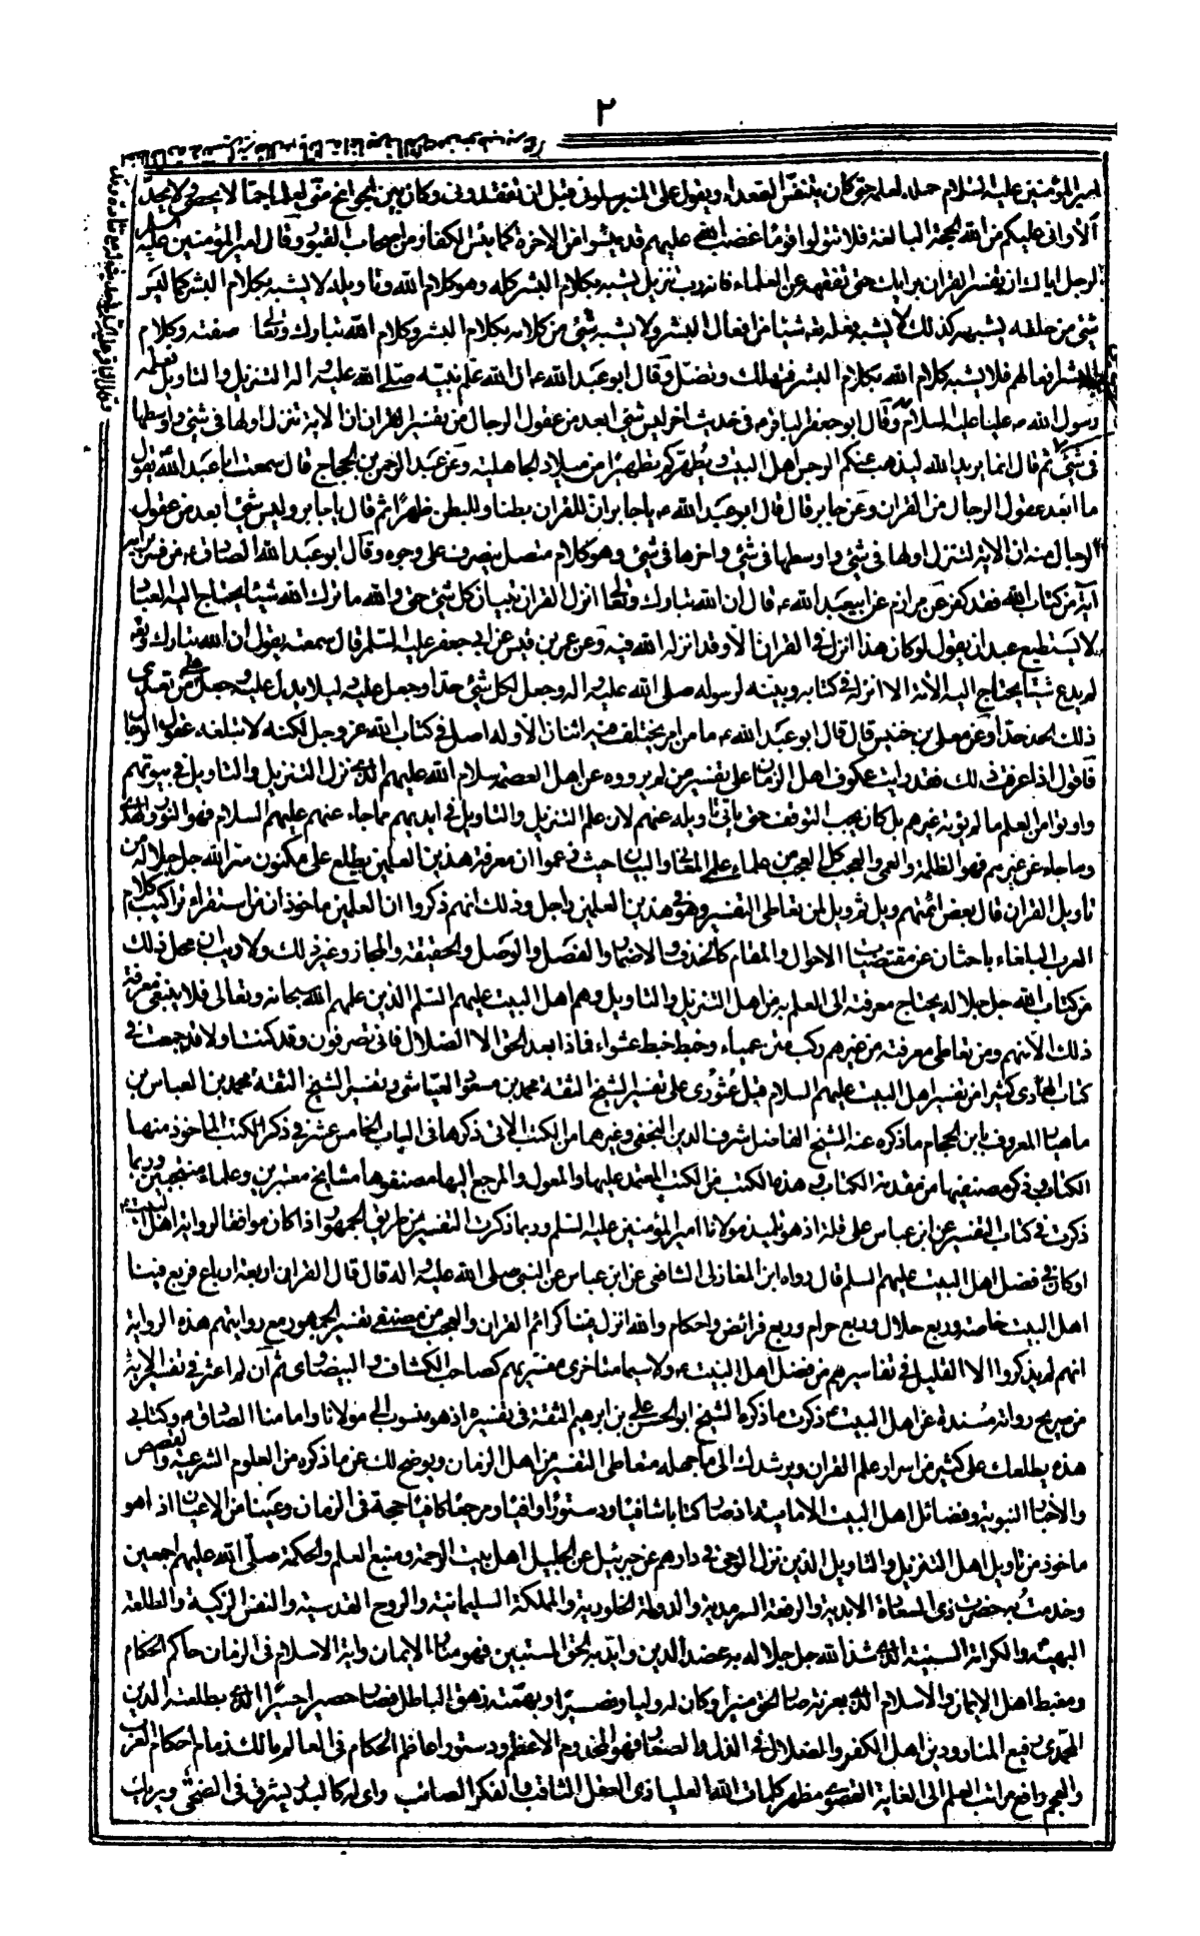 ٢
امير المؤمنين عليه السلام حملة لعلمه حتى كان يتنفس الصعداء ويقول على المنبر سلونى قبل ان تفقدونى وكان بين الجوانح منى لعلما جما لا يحصى ولا يحد
ألا وانى عليكم من الله الحجة البالغة فلا تتولوا قوما غضب الله عليهم قد يئسوا من الاخرة كما يئس الكفار من اصحاب القبور وقال امير المؤمنين عليه السلام
لرجل اياك ان تفسر القران برايك حتى تفقهه عن العلماء فانه رب تنزيل يشبه بكلام البشر كله وهو كلام الله وتاويله لا يشبه بكلام البشر كما ليس
شئ من خلقه يشبهه كذلك لا يشبه فعله تعه شيئا من افعال البشر ولا يشبه شئ من كلامه بكلام البشر وكلام الله تبارك وتعالى صفته وكلام
البشر افعالهم فلا يشبه كلام الله بكلام البشر فتهلك وتضل وقال ابو عبد الله ع ان الله علم نبيه صلى الله عليه واله التنزيل والتاويل فعلمه
رسول الله ص عليا عليه السلام وقال ابو جعفر الباقر ع فى حديث اخر ليس شئ ابعد من عقول الرجال من تفسير القران ان الاية تنزل اولها فى شئ واوسطها
فى شئ ثم قال انما يريد الله ليذهب عنكم الرجس اهل البيت ويطهركم تطهيرا من ميلاد الجاهلية وعن عبد الرحمن بن الحجاج قال سمعت ابا عبد الله يقول
ما ابعد عقول الرجال من القران وعن جابر قال قال ابو عبد الله ع يا جابر ان للقران بطنا وللبطن ظهرا ثم قال يا جابر وليس شئ ابعد من عقول
الرجال منه ان الاية لتنزل اولها فى شئ واوسطها فى شئ واخرها فى شئ وهو كلام متصل يتصرف على وجوه وقال ابو عبد الله الصادق ع من فسر برايه
آية من كتاب الله فقد كفر عن مرازم عن ابيعبد الله ع قال ان الله تبارك وتعالى انزل القران تبيان كل شئ حتى والله ما ترك الله شيئا يحتاج اليه العباد
لا يستطيع عبد ان يقول لو كان هذا انزل فى القران الا وقد انزله الله فيه وعن عمر بن قيس عن ابى جعفر عليه السلم قال سمعته يقول ان الله تبارك وتعه
لم يدع شيئا يحتاج اليه الأمة الا انزله فى كتابه وبينه لرسوله صلى الله عليه واله وجعل لكل شئ حدا وجعل عليه دليلا يدل عليه وجعل على من تعدى
ذلك الحد حدا وعن معلى بن خنيس قال قال ابو عبد الله ع ما من امر يختلف فيه اثنان الا وله اصل فى كتاب الله عز وجل لكنه لا تبلغه عقول الرجال
فاقول اذا عرفت ذلك فقد رايت عكوف اهل الزمان على تفسير من لم يرووه عن اهل العصمة سلام الله عليهم الذين نزل التنزيل والتاويل فى بيوتهم
واوتوا من العلم ما لم يؤته غيرهم بل كان يجب التوقف حتى ياتى تاويله عنهم لان علم التنزيل والتاويل فى ايديهم مما جاء عنهم عليهم السلام فهو النور والهدى
وما جاء عن غيرهم فهو الظلمة والعمى والعجب كل العجب من علماء علمى المعانى والبيان حيث زعموا ان معرفة هذين العلمين يطلع على مكنون سر الله جل جلاله من
تاويل القران قال بعض ائمتهم ويل ثم ويل لمن تعاطى التفسير وهو فى هذين العلمين راجل وذلك انهم ذكروا ان العلمين ماخوذان من استقراء تراكيب كلام
العرب البلغاء باحثان عن مقتضيات الاحوال والمقام كالحذف والاضمار والفصل والوصل والحقيقة والمجاز وغير ذلك ولا ريب ان محل ذلك
من كتاب الله جل جلاله يحتاج معرفته الى العلم به من اهل التنزيل والتاويل وهم اهل البيت عليهم السلم الذين علمهم الله سبحانه وتعالى فلا ينبغى معرفة
ذلك الا منهم ومن تعاطى معرفته من غيرهم ركب متن عمياء وخبط خبط عشواء فما ذا بعد الحق الا الضلال فانى تصرفون وقد كنت اولا قد جمعت فى
كتاب الهادى كثيرا من تفسير اهل البيت عليهم السلام قبل عثورى على تفسير الشيخ الثقة محمد بن مسعود العياشى وتفسير الشيخ الثقة محمد بن العباس بن
ماهيار المعروف بابن الجحام ما ذكره عنه الشيخ الفاضل شرف الدين النجفى وغيرها من الكتب الاتى ذكرها فى الباب الخامس عشر فى ذكر الكتب الماخوذ منها
الكتاب فى ذكر مصنفيها من مقدمة الكتاب وهذه الكتب من الكتب المعتمد عليها والمعول والمرجع اليها مصنفوها مشايخ معتبرين وعلماء منتجبين وربما
ذكرت فى كتاب التفسير عن ابن عباس على قلة اذ هو تلميذ مولانا امير المؤمنين عليه السلم وربما ذكرت التفسير من طريق الجمهور اذا كان موافقا لرواية اهل البيت ع
او كان فى فضل اهل البيت عليهم السلم قال رواه ابن المغازلى الشافعى عن ابن عباس عن النبى صلى الله عليه واله قال قال القران اربعة ارباع فربع فينا
اهل البيت خاصة وربع حلال وربع حرام وربع فرائض واحكام والله انزل فينا كرائم القران والعجب من مصنفى تفسير الجمهور مع روايتهم هذه الرواية
انهم لم يذكروا الا القليل فى تفاسيرهم من فضل اهل البيت ع ولا سيما متاخرى مفسريهم كصاحب الكشاف والبيضاوى ثم ان لم اعثر فى تفسير الاية
من صريح رواية مسندة عن اهل البيت ع ذكرت ما ذكره الشيخ ابو الحسن على بن ابراهيم الثقة فى تفسيره اذ هو منسوب الى مولانا وامامنا الصادق ع وكتابى
هذه يطلعك على كثير من اسرار علم القران ويرشدك الى ما جهله متعاطى التفسير من اهل الزمان ويوضح لك عن ما ذكره من العلوم الشرعية والقصص
والاخبار النبوية وفضائل اهل البيت الامامية اذ صار كتابا شافيا ودستورا وافيا ومرجعا كافيا حجة فى الزمان وعينا من الاعيان اذ هو
ماخوذ من تاويل اهل التنزيل والتاويل الذين نزل الوحى فى دارهم عن جبرئيل عن الجليل اهل بيت الرحمة ومنبع العلم والحكمة صلى الله عليهم اجمعين
وخدمت به حضرت ذى السعادة الابدية والرفعة السرمدية والدولة الخلودية والمملكة السليمانية والروح القدسية والنفس الزكية والطلعة
البهية والكرامة السنية الذى شد الله جل جلاله به عضد الدين وايد به الحق المستبين فهو منار الايمان واية الاسلام فى الزمان حاكم الحكام
ومغبط اهل الايمان والاسلام الذى بعزته صار الحق منيرا وكان له وليا ونصيرا وبهمته زهق الباطل فصار حصيرا حسيرا الذى بطلعته الدين
المحمدى رفيع المنار ودين اهل الكفر والضلال فى الذل والصغار فهو المخدوم الاعظم ودستور اعاظم الحكام فى العالم مالك زمام احكام العرب
والعجم رافع مراتب العلم الى الغاية القصوى مظهر كلمات الله العليا ذى العقل الثاقب والفكر الصائب واى له كالبدر يشرق فى الضحى ويريك